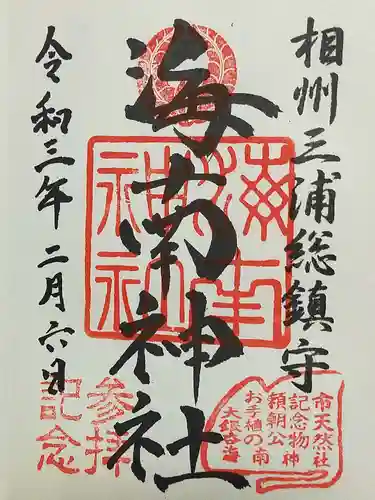 相州三浦総鎮守
海南神社
令和三年二月六日
海南
神社
参拝
記念
市天然
記念物
頼朝公
お手植の
大銀杏
海南
神社